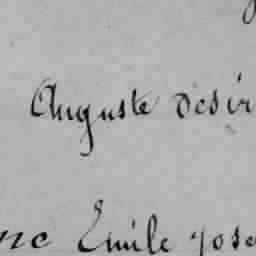 Auguste Desir
nc Emile Jose